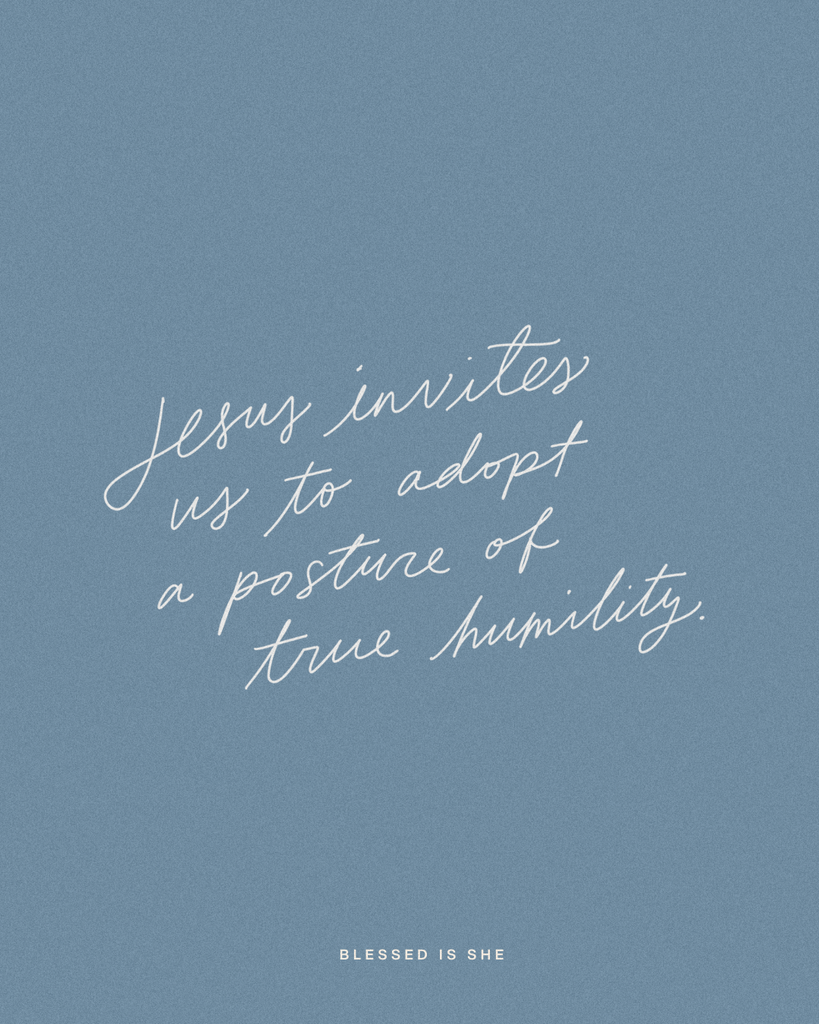 Jesus invites
us to adopt
a posture of
true humility.
BLESSED IS SHE